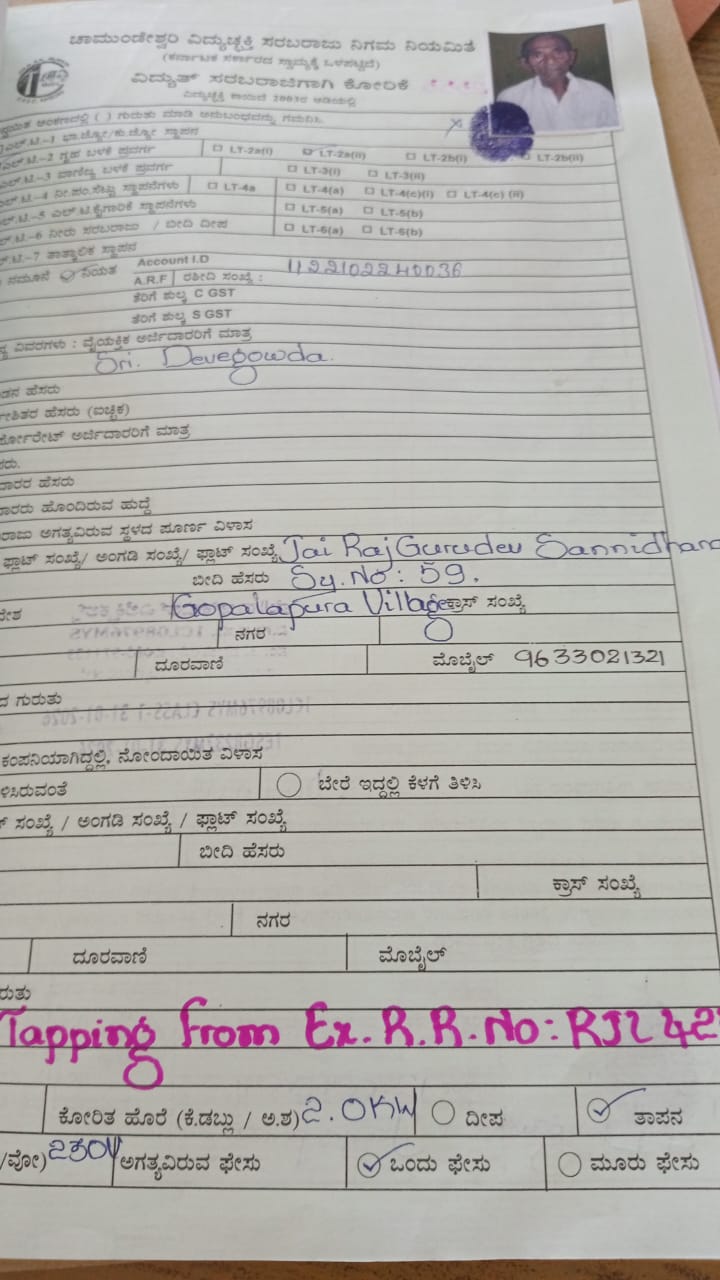 ಚಾಮುಂಡೇಶ್ವರಿ ವಿದ್ಯುಚ್ಛಕ್ತಿ ಸರಬರಾಜು ನಿಗಮ ನಿಯಮಿತ
(ಕರ್ನಾಟಕ ಸರ್ಕಾರದ ಸ್ವಾಮ್ಯಕ್ಕೆ ಒಳಪಟ್ಟಿದೆ)
ವಿದ್ಯುತ್ ಸರಬರಾಜಿಗಾಗಿ ಕೋರಿಕೆ
ವಿದ್ಯುಚ್ಛಕ್ತಿ ಕಾಯಿದೆ 2003ರ ಅಡಿಯಲ್ಲಿ
ಅಂಕಣದಲ್ಲಿ ( ) ಗುರುತು ಮಾಡಿ ಅನುಬಂಧವನ್ನು ಗಮನಿಸಿ
ಎಲ್.ಟಿ.-1 ಭಾ.ಜ್ಯೋ/ಕು.ಜ್ಯೋ ಸ್ಥಾಪನ
ಎಲ್.ಟಿ.-2 ಗೃಹ ಬಳಕೆ ಪ್ರವರ್ಗ LT-2a(i) LT-2a(ii) LT-2b(i) LT-2b(ii)
ಎಲ್.ಟಿ.-3 ವಾಣಿಜ್ಯ ಬಳಕೆ ಪ್ರವರ್ಗ LT-3(i) LT-3(ii)
ಎಲ್.ಟಿ.-4 ನೀ.ಪಂ.ಸೆಟ್ಟು ಸ್ಥಾಪನೆಗಳು LT-4a LT-4(a) LT-4(c)(i) LT-4(c) (ii)
ಎಲ್.ಟಿ.-5 ಎಲ್.ಟಿ.ಕೈಗಾರಿಕೆ ಸ್ಥಾಪನೆಗಳು LT-5(a) LT-5(b)
ಎಲ್.ಟಿ.-6 ನೀರು ಸರಬರಾಜು / ಬೀದಿ ದೀಪ LT-6(a) LT-6(b)
ಎಲ್.ಟಿ.-7 ತಾತ್ಕಾಲಿಕ ಸ್ಥಾಪನ
ನಮೂನೆ ನಿಯತ Account I.D 1122102240036
A.R.F ರಶೀದಿ ಸಂಖ್ಯೆ :
ತೆರಿಗೆ ಶುಲ್ಕ C GST
ತೆರಿಗೆ ಶುಲ್ಕ S GST
ವಿವರಗಳು : ವೈಯಕ್ತಿಕ ಅರ್ಜಿದಾರರಿಗೆ ಮಾತ್ರ
Sri. Devegowda.
ಹೆಸರು
ಹೆಸರು (ಐಚ್ಛಿಕ)
ಅರ್ಜಿದಾರರಿಗೆ ಮಾತ್ರ
ಹೆಸರು
ಹೊಂದಿರುವ ಹುದ್ದೆ
ಅಗತ್ಯವಿರುವ ಸ್ಥಳದ ಪೂರ್ಣ ವಿಳಾಸ
ಫ್ಲಾಟ್ ಸಂಖ್ಯೆ/ ಅಂಗಡಿ ಸಂಖ್ಯೆ/ ಫ್ಲಾಟ್ ಸಂಖ್ಯೆ Jai Raj Gurudev Sannidhana
ಬೀದಿ ಹೆಸರು Sy. No: 59.
Gopalapura Village ಕ್ರಾಸ್ ಸಂಖ್ಯೆ
ನಗರ
ದೂರವಾಣಿ ಮೊಬೈಲ್ 9633021321
ಗುರುತು
ಕಂಪನಿಯಾಗಿದ್ದಲ್ಲಿ, ನೋಂದಾಯಿತ ವಿಳಾಸ
ಬೇರೆ ಇದ್ದಲ್ಲಿ ಕೆಳಗೆ ತಿಳಿಸಿ
ಸಂಖ್ಯೆ / ಅಂಗಡಿ ಸಂಖ್ಯೆ / ಫ್ಲಾಟ್ ಸಂಖ್ಯೆ
ಬೀದಿ ಹೆಸರು
ಕ್ರಾಸ್ ಸಂಖ್ಯೆ
ನಗರ
ದೂರವಾಣಿ ಮೊಬೈಲ್
Tapping from Ex. R.R. No: RJL 42
ಕೋರಿತ ಹೊರೆ (ಕೆ.ಡಬ್ಲು / ಅ.ಶ) 2.0KW ದೀಪ ತಾಪನ
230V ಅಗತ್ಯವಿರುವ ಫೇಸು ಒಂದು ಫೇಸು ಮೂರು ಫೇಸು